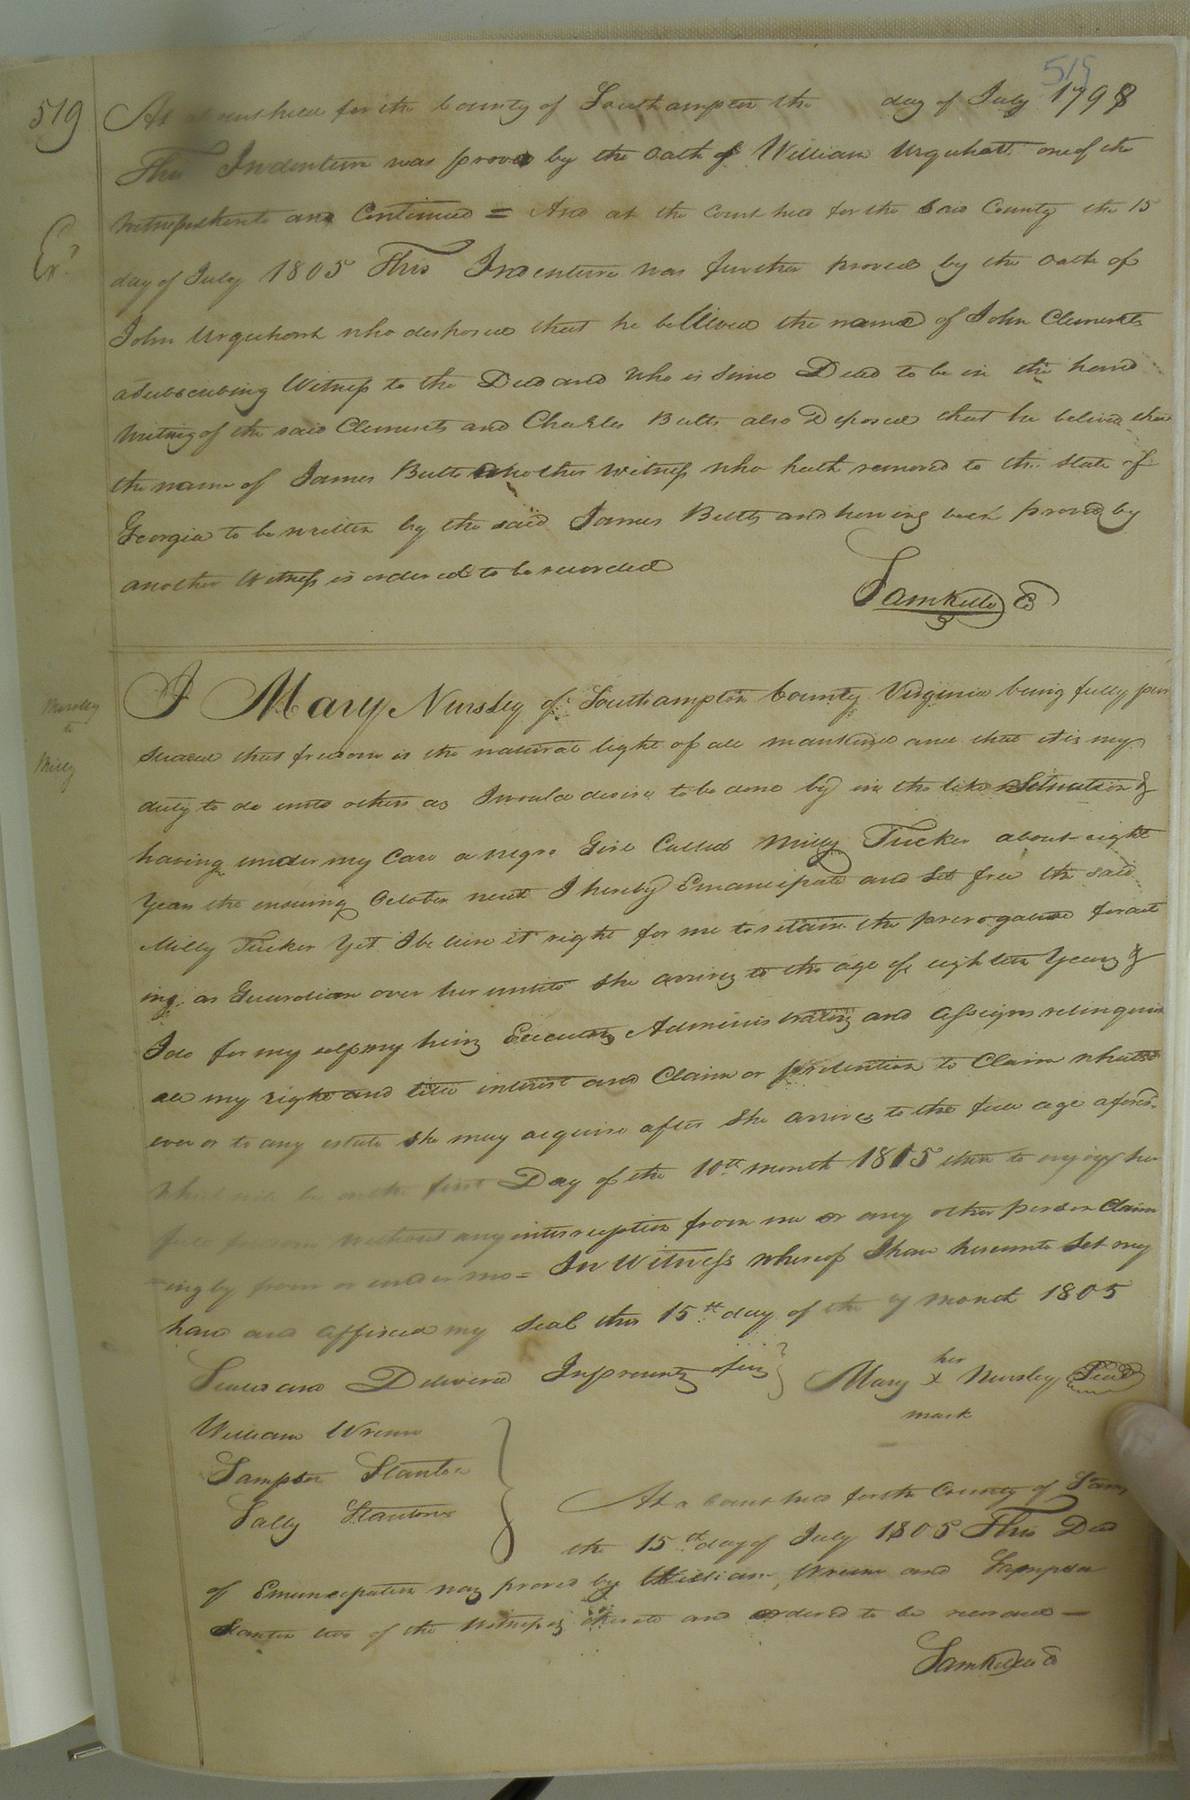 515
519
At a Court held for the County of Southampton the day of July 1798
This Indenture was proved by the Oath of William Urquhart one of the
Witnesses hereto and Continued = And at the Court held for the said County the 15
Exd
day of July 1805 This Indenture was further proved by the Oath of
John Urquehart who deposed that he believed the name of John Clements
a Subscribing Witness to the Deed and who is since Dead to be in the hand
writing of the said Clements and Charles Butts also Deposed that he believed that
the name of James Butts another witness who hath removed to the State of
Georgia to be written by the said James Butts and having been proved by
another Witness is ordered to be recorded
Sam Kello C
I Mary Nursley of Southampton County Virginia being fully per
Nursley
to
Milly
swaded that freedom is the natural light of all mankind and that it is my
duty to do unto others as I would desire to be done by in the like Situation &
having under my care a negro Girl Called Milly Tucker about eight
Years the ensuing October next I hereby Emancipate and Set free the said
Milly Tucker Yet I believe it right for me to retain the prerogative for act
ing as Guardian over her until she arrives to the age of eighteen Years &
I do for my self my heirs Executors Administrators and Assigns relinquish
all my right and title interest and Claim or pretention to Claim whatso
ever or to any estate she may acquire after she arrives to the full age aforesd
which will be on the first Day of the 10th month 1815 then to enjoy her
full freedom without any interruption from me or any other person Claim
ing by from or under me = In Witness whereof I have hereunto Set my
hand and affixed my Seal this 15th day of the 7 month 1805
Sealed and Delivered In presents of us } Mary her X mark Nursley Seal
William Wrenn
Sampson Stanton
Sally Stanton
At a Court held for the County of Southam
the 15th day of July 1805 This Deed
of Emancipation was proved by William Wrenn and Sampson
Stanton two of the Witnesses thereto and ordered to be recorded —
Sam Kello C